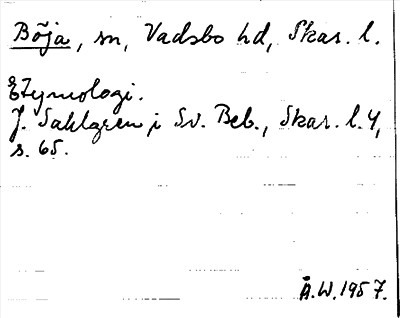 Böja, sn, Vadsbo hd, Skar. l.
Etymologi.
J. Sahlgren i Sv. Beb., Skar. l. 4,
s. 65.
Å.W. 1957.